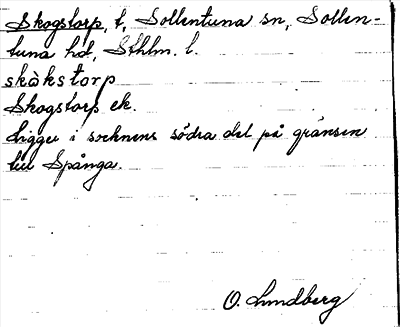 Skogstorp, t, Sollentuna sn, Sollen-
tuna hd, Sthlm. l.
skòkstorp
Skogstorp ek.
Ligger i socknens södra del på gränsen
till Spånga.
O. Lundberg